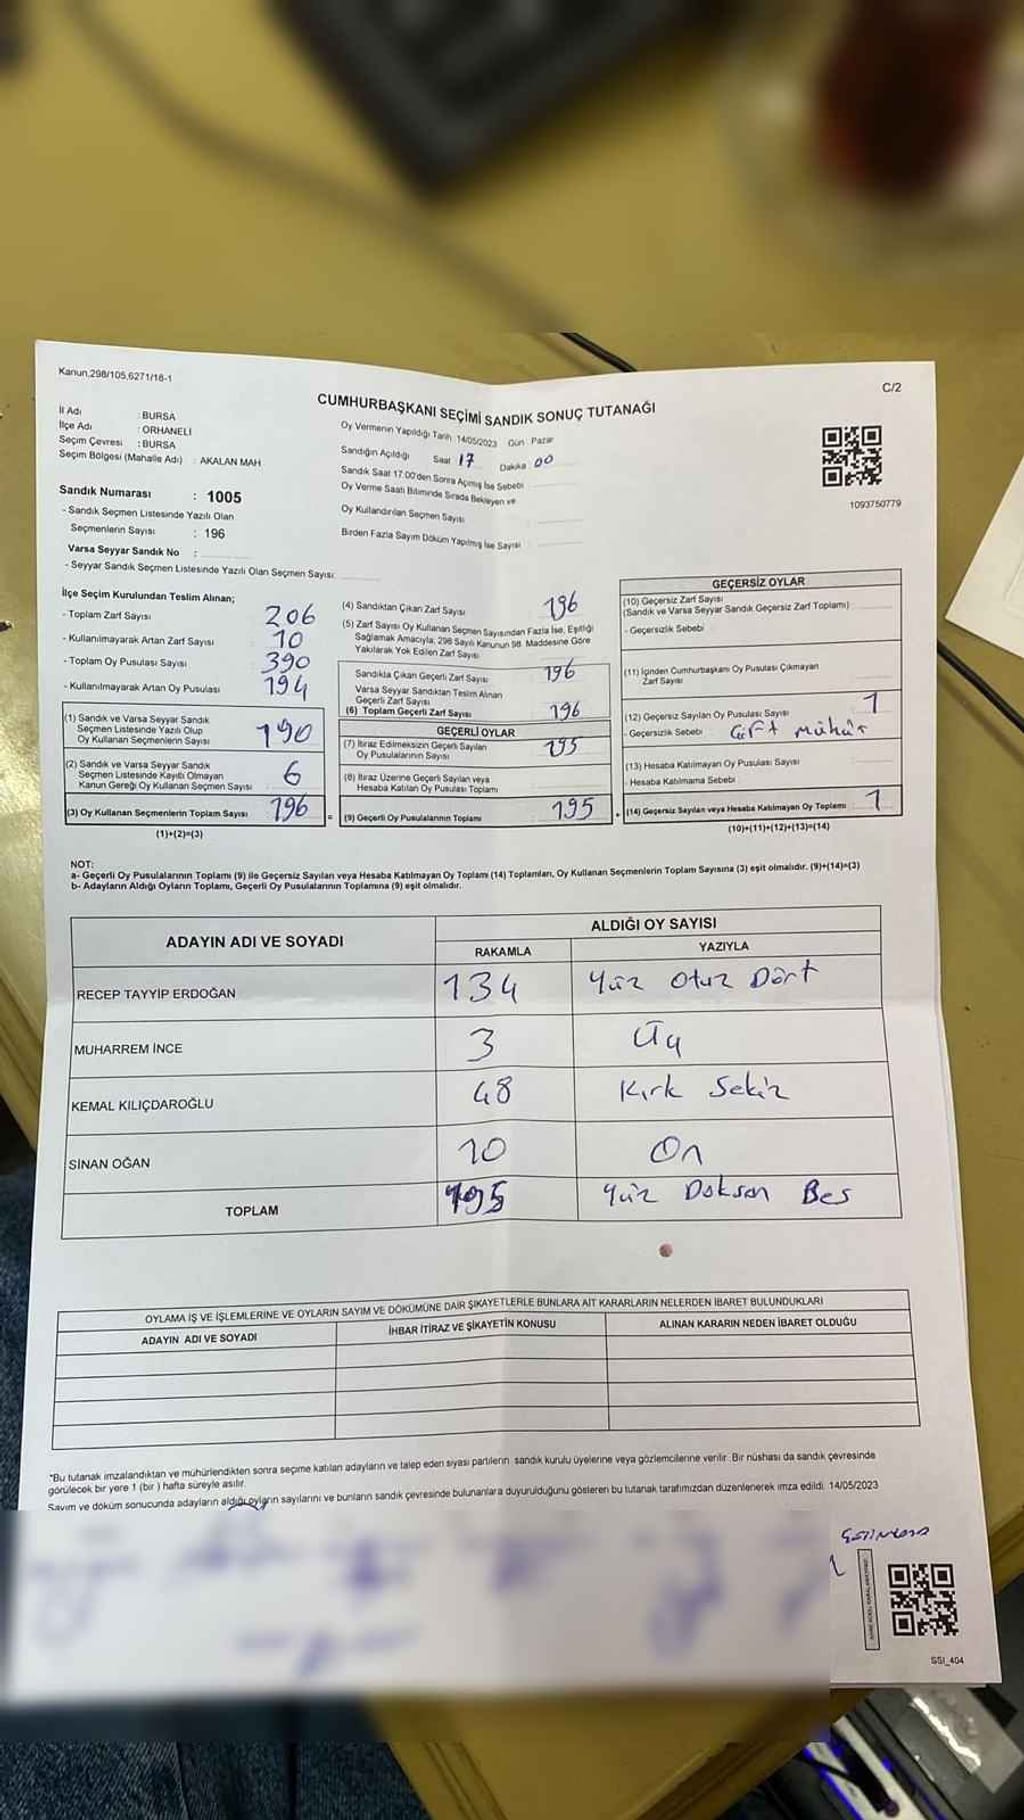 Kanun,298/105,6271/16-1
C/2
CUMHURBAŞKANI SEÇİMİ SANDIK SONUÇ TUTANAĞI
İl Adı : BURSA
İlçe Adı : ORHANELİ
Seçim Çevresi : BURSA
Seçim Bölgesi (Mahalle Adı) : AKALAN MAH
Oy Vermenin Yapıldığı Tarih 14/05/2023 Gün : Pazar
Sandığın Açıldığı Saat 17 Dakika 00
Sandık Saat 17.00'den Sonra Açılmış İse Sebebi
Oy Verme Saati Bitiminde Sırada Bekleyen ve
Oy Kullandırılan Seçmen Sayısı
Birden Fazla Sayım Döküm Yapılmış İse Sayısı
1093750779
Sandık Numarası : 1005
- Sandık Seçmen Listesinde Yazılı Olan
Seçmenlerin Sayısı : 196
Varsa Seyyar Sandık No :
- Seyyar Sandık Seçmen Listesinde Yazılı Olan Seçmen Sayısı:
İlçe Seçim Kurulundan Teslim Alınan;
- Toplam Zarf Sayısı 206
- Kullanılmayarak Artan Zarf Sayısı 10
- Toplam Oy Pusulası Sayısı 390
- Kullanılmayarak Artan Oy Pusulası 194
(1) Sandık ve Varsa Seyyar Sandık
Seçmen Listesinde Yazılı Olup
Oy Kullanan Seçmenlerin Sayısı 190
(2) Sandık ve Varsa Seyyar Sandık
Seçmen Listesinde Kayıtlı Olmayan
Kanun Gereği Oy Kullanan Seçmen Sayısı 6
(3) Oy Kullanan Seçmenlerin Toplam Sayısı 196
(1)+(2)=(3)
(4) Sandıktan Çıkan Zarf Sayısı 196
(5) Zarf Sayısı Oy Kullanan Seçmen Sayısından Fazla İse, Eşitliği
Sağlamak Amacıyla, 298 Sayılı Kanunun 98. Maddesine Göre
Yakılarak Yok Edilen Zarf Sayısı
Sandıkla Çıkan Geçerli Zarf Sayısı 196
Varsa Seyyar Sandıktan Teslim Alınan
Geçerli Zarf Sayısı
(6) Toplam Geçerli Zarf Sayısı 196
GEÇERLİ OYLAR
(7) İtiraz Edilmeksizin Geçerli Sayılan
Oy Pusulalarının Sayısı 195
(8) İtiraz Üzerine Geçerli Sayılan veya
Hesaba Katılan Oy Pusulası Toplamı
= (9) Geçerli Oy Pusulalarının Toplamı 195
GEÇERSİZ OYLAR
(10) Geçersiz Zarf Sayısı
(Sandık ve Varsa Seyyar Sandık Geçersiz Zarf Toplamı)
- Geçersizlik Sebebi
(11) İçinden Cumhurbaşkanı Oy Pusulası Çıkmayan
Zarf Sayısı
(12) Geçersiz Sayılan Oy Pusulası Sayısı 1
- Geçersizlik Sebebi Çift mühür
(13) Hesaba Katılmayan Oy Pusulası Sayısı
- Hesaba Katılmama Sebebi
+ (14) Geçersiz Sayılan veya Hesaba Katılmayan Oy Toplamı 1
(10)+(11)+(12)+(13)=(14)
NOT:
a- Geçerli Oy Pusulalarının Toplamı (9) ile Geçersiz Sayılan veya Hesaba Katılmayan Oy Toplamı (14) Toplamları, Oy Kullanan Seçmenlerin Toplam Sayısına (3) eşit olmalıdır. (9)+(14)=(3)
b- Adayların Aldığı Oyların Toplamı, Geçerli Oy Pusulalarının Toplamına (9) eşit olmalıdır.
ADAYIN ADI VE SOYADI
ALDIĞI OY SAYISI
RAKAMLA YAZIYLA
RECEP TAYYİP ERDOĞAN 134 Yüz Otuz Dört
MUHARREM İNCE 3 Üç
KEMAL KILIÇDAROĞLU 48 Kırk Sekiz
SİNAN OĞAN 10 On
TOPLAM 195 Yüz Doksan Beş
OYLAMA İŞ VE İŞLEMLERİNE VE OYLARIN SAYIM VE DÖKÜMÜNE DAİR ŞİKAYETLERLE BUNLARA AİT KARARLARIN NELERDEN İBARET BULUNDUKLARI
ADAYIN ADI VE SOYADI İHBAR İTİRAZ VE ŞİKAYETİN KONUSU ALINAN KARARIN NEDEN İBARET OLDUĞU
*Bu tutanak imzalandıktan ve mühürlendikten sonra seçime katılan adayların ve talep eden siyasi partilerin sandık kurulu üyelerine veya gözlemcilerine verilir. Bir nüshası da sandık çevresinde
görülecek bir yere 1 (bir) hafta süreyle asılır.
Sayım ve döküm sonucunda adayların aldığı oyların sayılarını ve bunların sandık çevresinde bulunanlara duyurulduğunu gösteren bu tutanak tarafımızdan düzenlenerek imza edildi. 14/05/2023
SSI_404